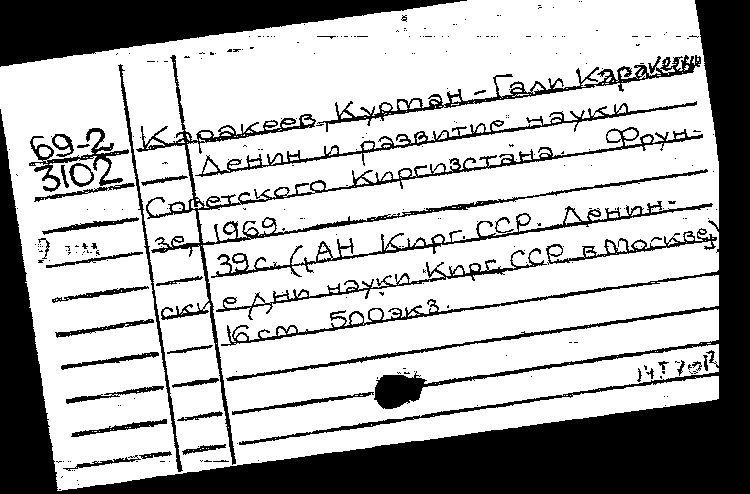 69-2
3102
Каракеев, Курман-Гали Каракеевич
Ленин и развитие науки
Советского Киргизстана. Фрун-
зе, 1969.
39 с. (АН Кирг. ССР. Ленин-
ские дни науки Кирг. ССР в Москве)
16 см. 500 экз.